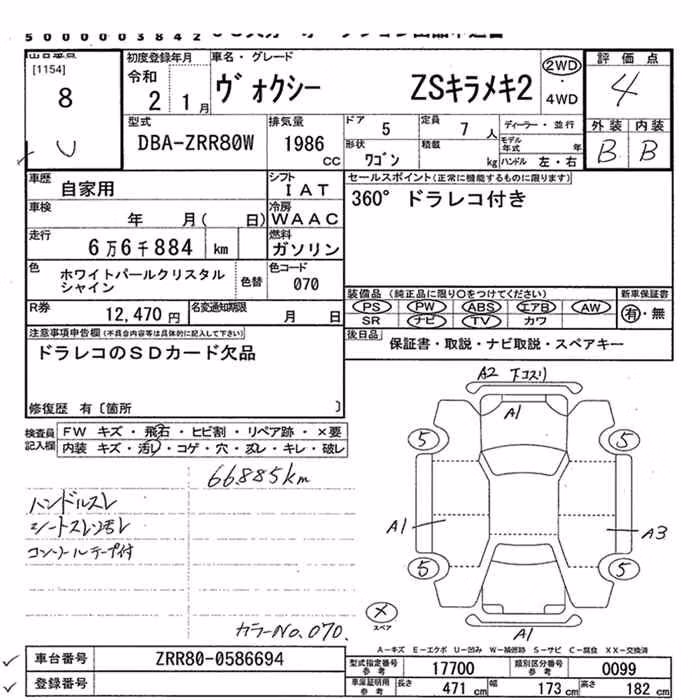 5000003842
[1154]
8
初度登録年月
令和
2 1月
車名・グレード
ヴォクシー ZSキラメキ2
2WD
・
4WD
評価点
4
外装 内装
B B
型式
DBA-ZRR80W
排気量
1986
CC
ドア 5
定員 7 人
形状 ワゴン
積載 kg
ディーラー・並行
モデル年式 年
ハンドル 左・右
車歴 自家用
シフト IAT
車検 年 月( 日)
冷房 WAAC
走行 6万6千884 km
燃料 ガソリン
色 ホワイトパールクリスタルシャイン
色替
色コード 070
R券 12,470円
名変通知期限 月 日
セールスポイント(正常に機能するものに限ります)
360° ドラレコ付き
装備品(純正品に限り○をつけてください)
PS PW ABS エアB AW
SR ナビ TV カワ
新車保証書
有・無
後日品 保証書・取説・ナビ取説・スペアキー
注意事項申告欄(不具合内容等は具体的に記入して下さい)
ドラレコのSDカード欠品
修復歴 有〔箇所 〕
検査員記入欄
FW キズ・飛石・ヒビ割・リペア跡・×要
内装 キズ・汚れ・コゲ・穴・スレ・キレ・破レ
66885km
ハンドルスレ
シートスレ汚レ
コンソールテープ付
カラーNo.070.
A2 下コスリ
A1
5 5
A1 A3
5 5
×
スペア
A1
A－キズ E－エクボ U－凹み W－補修跡 S－サビ C－腐食 XX－交換済
車台番号 ZRR80-0586694
登録番号
型式指定番号 参考 17700
類別区分番号 参考 0099
車庫証明用 参考 長さ 471cm 幅 173cm 高さ 182cm